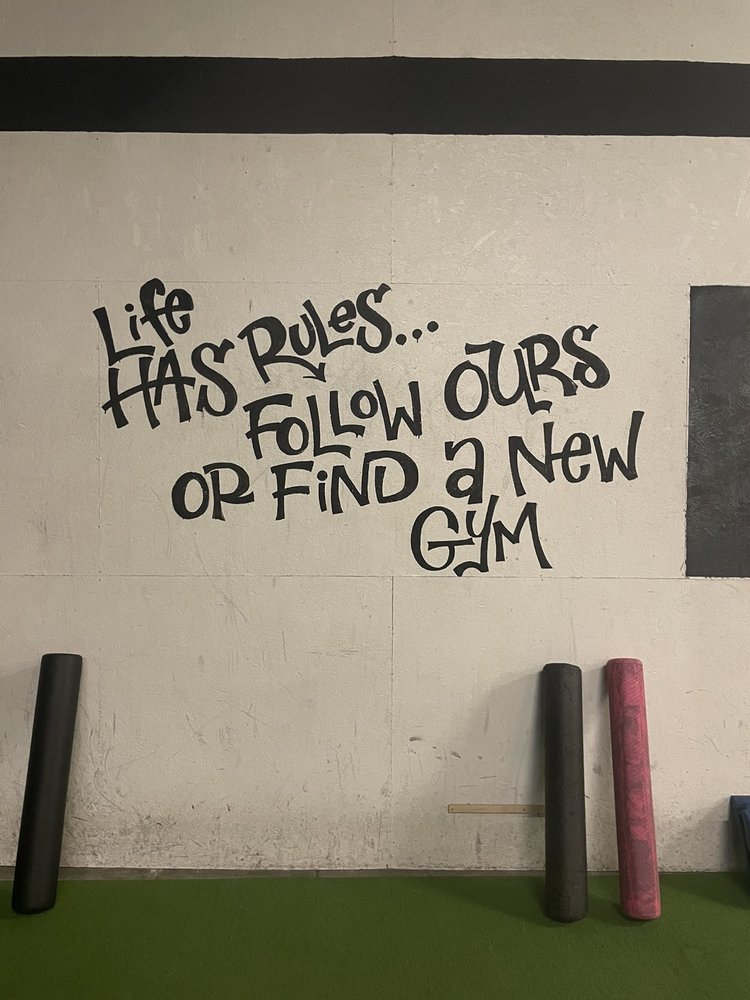 Life
HAS RULeS...
FOLLOW OURS
OR FiND a New
GYM